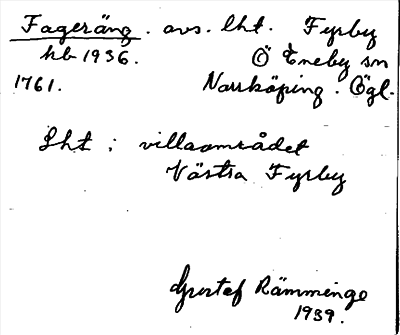 Fageräng. avs. lht. Fyrby
hb 1936. Ö Eneby sn
1761. Norrköping. Ögl.
Lht i villaområdet
Västra Fyrby
Gustaf Rämminge
1939.